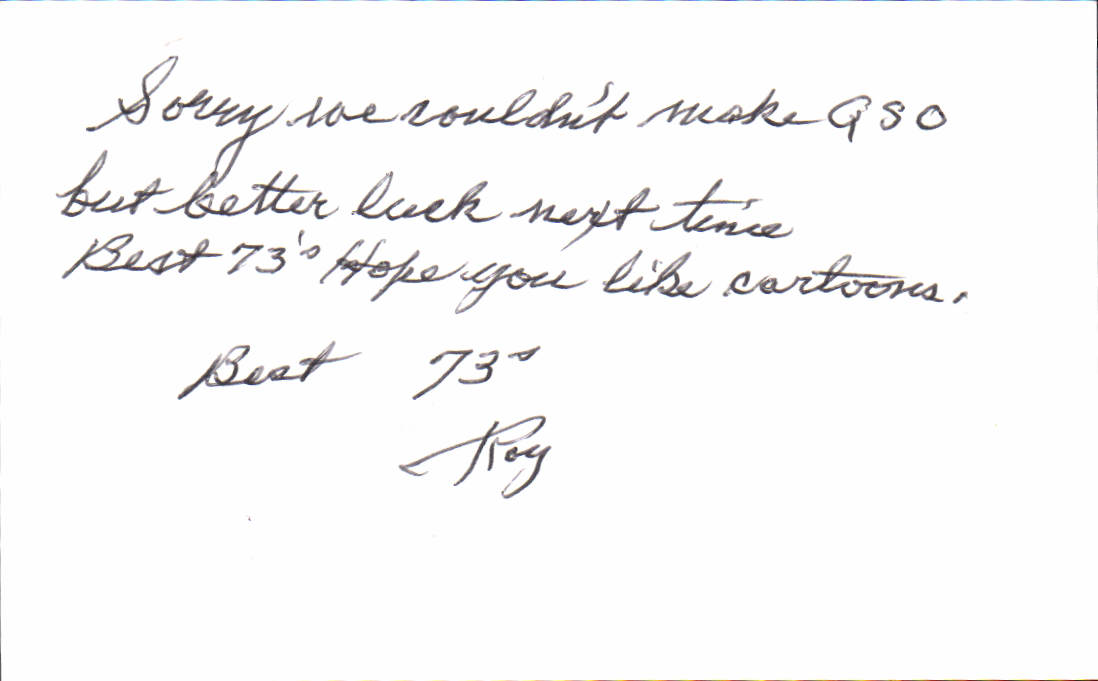 Sorry we couldn't make QSO
but better luck next time
Best 73's Hope you like cartoons.
Best 73s
Roy